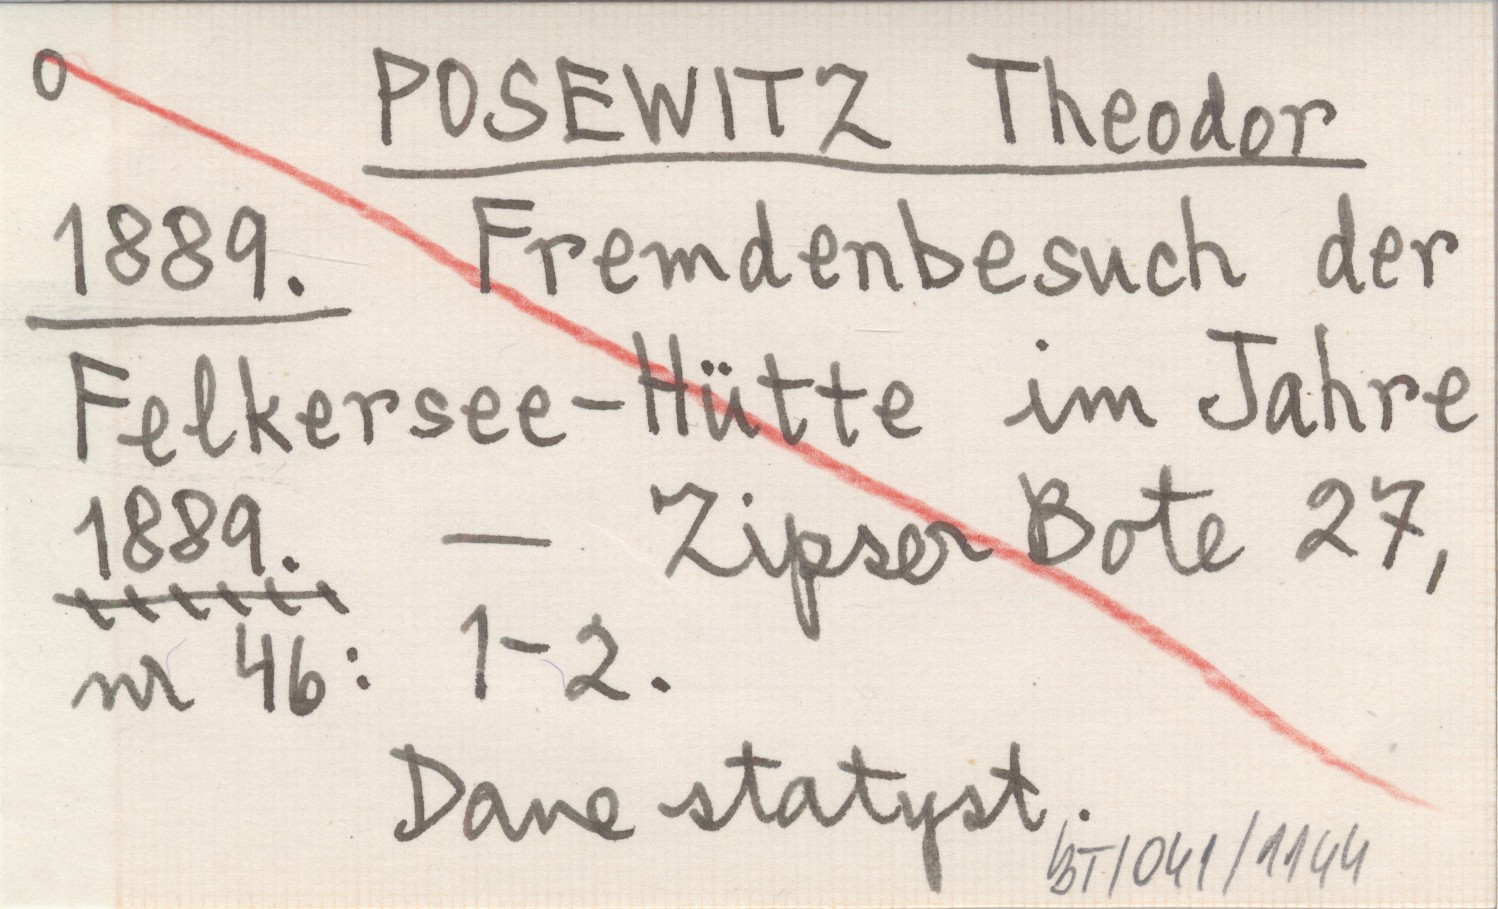 o POSEWITZ Theodor
1889. Fremdenbesuch der
Felkersee-Hütte im Jahre
1889. — Zipser Bote 27,
nr 46: 1-2.
Dane statyst.
BT/041/1144